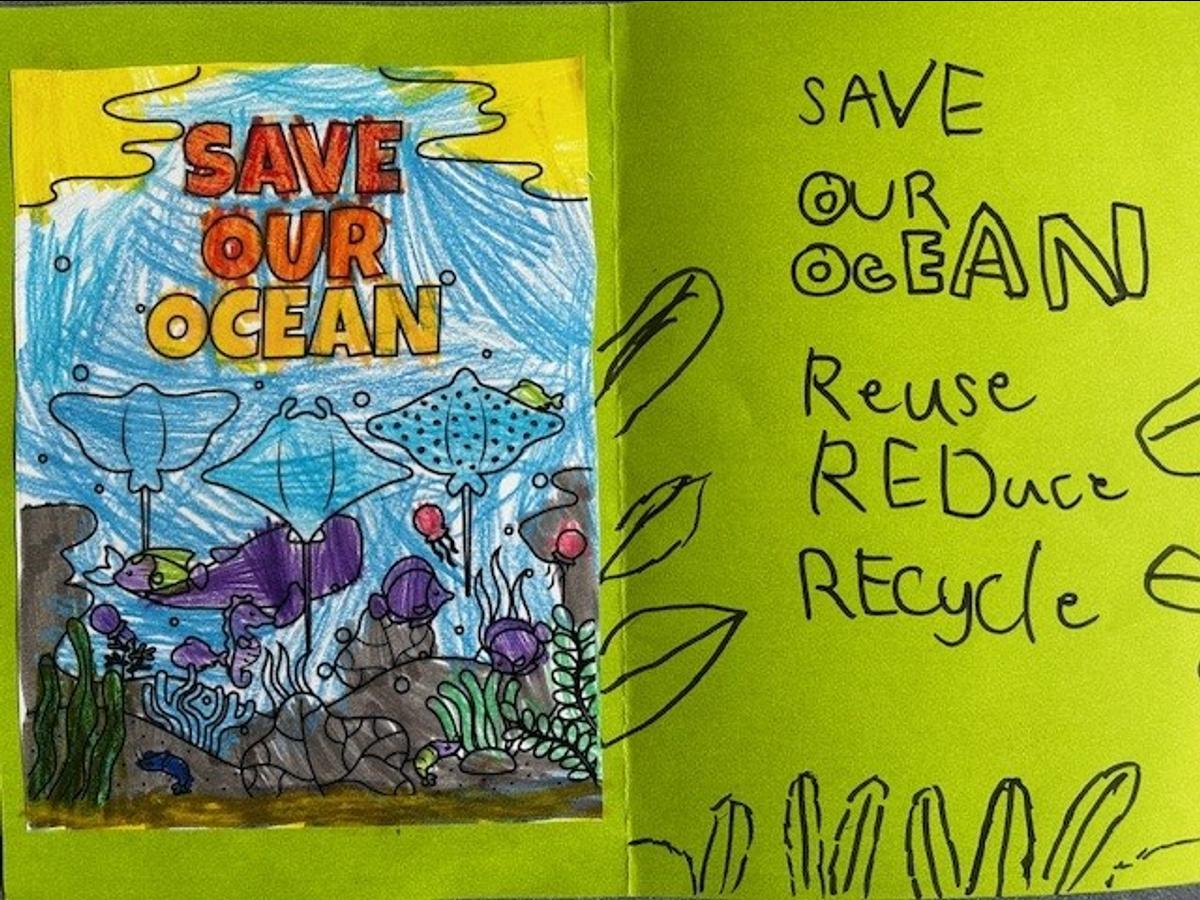 SAVE
OUR
OCEAN
SAVE
OUR
OcEAN
Reuse
REDuce
REcycle